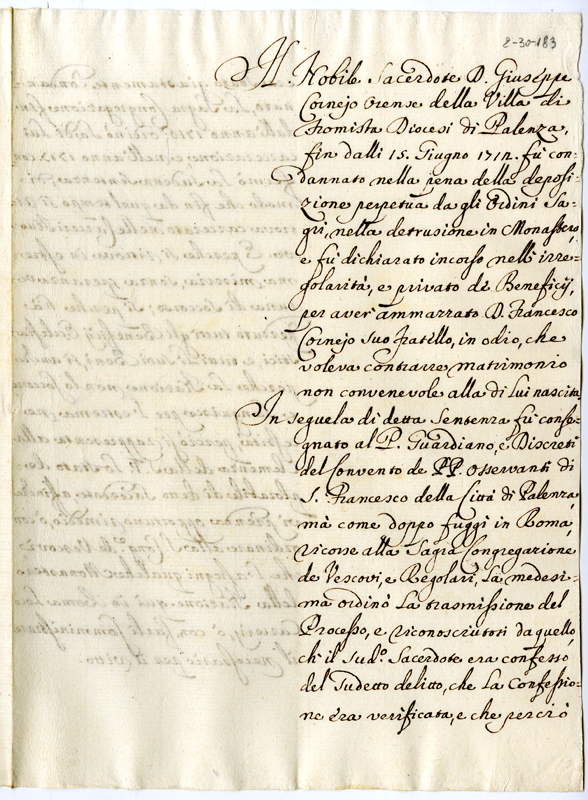 8-30-183
Il Nobile Sacerdote D. Giuseppe
Cornejo Orense della Villa di
Fromista Diocesi di Palenza,
fin dalli 15. Giugno 1712. fù con=
dannato nella pena della deposi=
zione perpetua da gli Ordini Sa=
gri, nella detrusione in Monastero,
e fù dichiarato incorso nell'irre=
golarità, e privato di Beneficij,
per aver' ammazzato D. Francesco
Cornejo Suo fratello, in odio, che
voleva contrarre matrimonio
non convenevole alla di Lui nascita
In sequela di detta Sentenza fù conse=
gnato al P. Guardiano, e Discreti
del Convento de PP. Osservanti di
S. Francesco della Città di Palenza,
mà come doppo fuggì in Roma,
ricorse alla Sagra Congregazione
de Vescovi, e Regolari, La medesi=
ma ordinò La trasmissione del
Processo, e riconosciutosi da quello,
ch'il Sud.º Sacerdote era confesso
del Sudetto delitto, che La Confessio=
ne era verificata, e che perciò